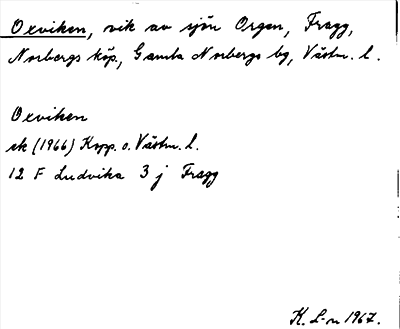 Oxviken, vik av sjön Orgen, Fragg,
Norbergs köp., Gamla Norbergs bg, Västm. l.
Oxviken
ek (1966) Kopp. o. Västm. l.
12 F Ludvika 3 j Fragg
K. L-n 1967.